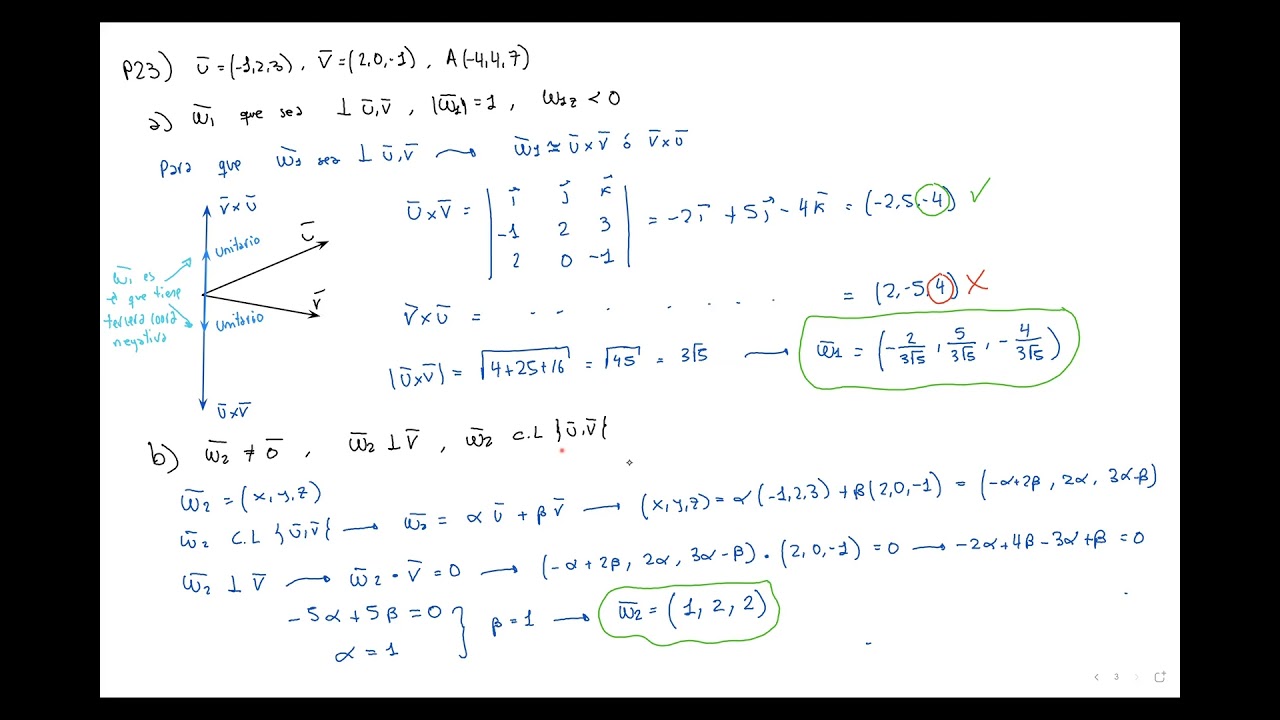 P23) ū = (-1,2,3) , v̄ = (2,0,-1) , A(-4,4,7)
a) w̄₁ que sea ⊥ ū,v̄ , |w̄₁| = 1 , w₁z < 0
Para que w̄₁ sea ⊥ ū,v̄ → w̄₁ ≅ ū×v̄ ó v̄×ū
v̄×ū
ū
Unitario
w̄₁ es
el que tiene
tercera coord
negativa
v̄
Unitario
ū×v̄
ū×v̄ = | i⃗ j⃗ k⃗ |
| -1 2 3 |
| 2 0 -1 | = -2i⃗ + 5j⃗ - 4k⃗ = (-2,5,-4) ✓
v̄×ū = . . . . . . . . . = (2,-5,4) ✗
|ū×v̄| = √(4+25+16) = √45 = 3√5 → w̄₁ = (-2/3√5 , 5/3√5 , -4/3√5)
b) w̄₂ ≠ 0̄ , w̄₂ ⊥ v̄ , w̄₂ C.L {ū,v̄{
w̄₂ = (x,y,z)
w̄₂ C.L {ū,v̄{ → w̄₂ = α ū + β v̄ → (x,y,z) = α(-1,2,3) + β(2,0,-1) = (-α+2β , 2α , 3α-β)
w̄₂ ⊥ v̄ → w̄₂ · v̄ = 0 → (-α+2β, 2α, 3α-β) · (2,0,-1) = 0 → -2α+4β-3α+β = 0
-5α+5β = 0
α = 1 } β = 1 → w̄₂ = (1, 2, 2)
3